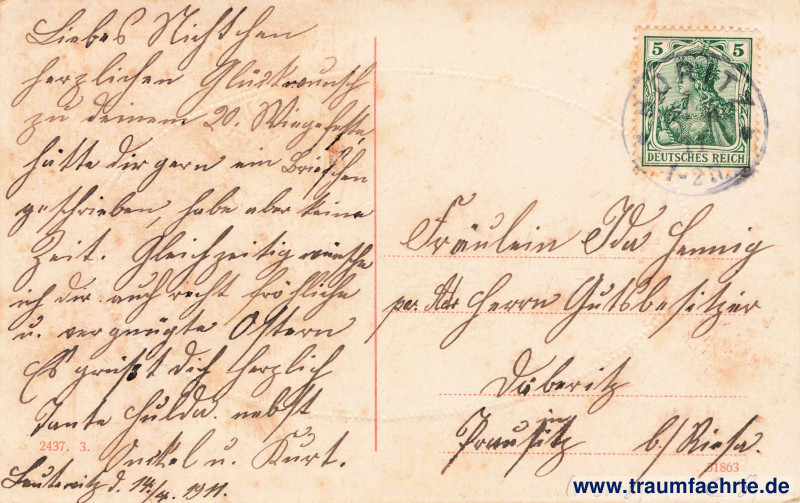 Liebes Nichtchen
herzlichen Glückwunsch
zu deinem 20. Wiegenfeste,
hätte dir gern ein Briefchen
geschrieben, habe aber keine
Zeit. Gleichzeitig wünsche
ich dir auch recht fröhliche
u. vergnügte Ostern
Es grüßt dich herzlich
Tante Hulda nebst
Onkel u. Kurt.
2437. 3.
Leutewitz d. 14/4. 1911.
5 5
DEUTSCHES REICH
Fräulein Ida Hennig
per. Adr Herrn Gutsbesitzer
Däberitz
in
Prausitz b/ Riesa.
31863
www.traumfaehrte.de